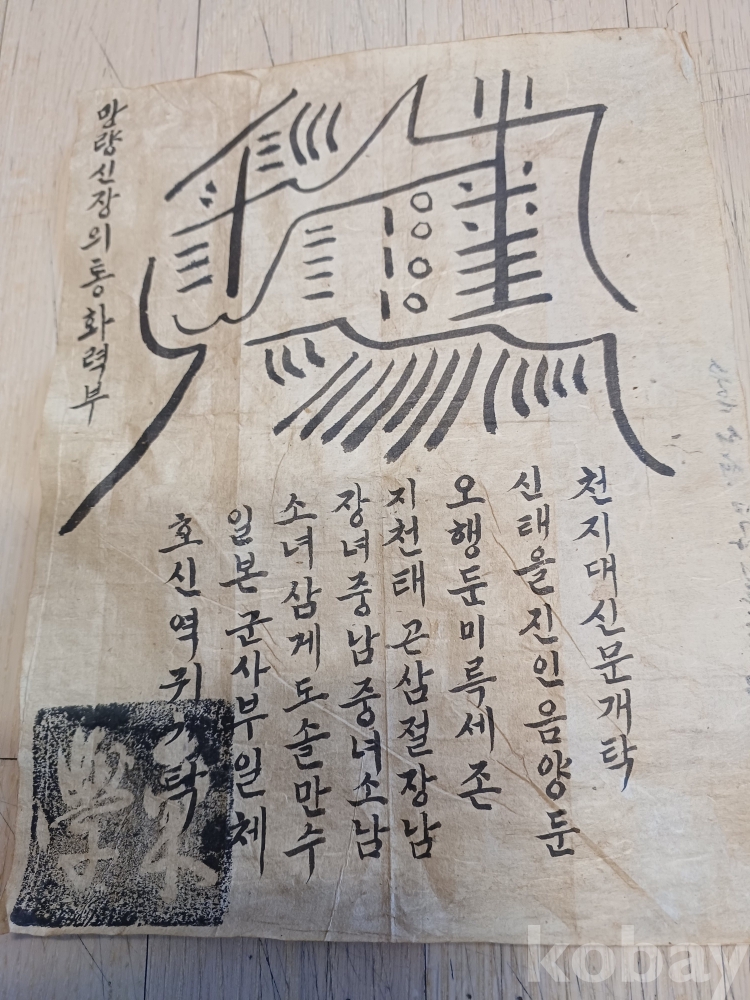 망량신장의통화력부
천지대신문개탁
신태을진인음양둔
오행둔미륵세존
지천태곤삼절장남
장녀중남중녀소남
소녀삼게도솔만수
일본군사부일체
호신역귀
탁
kobay